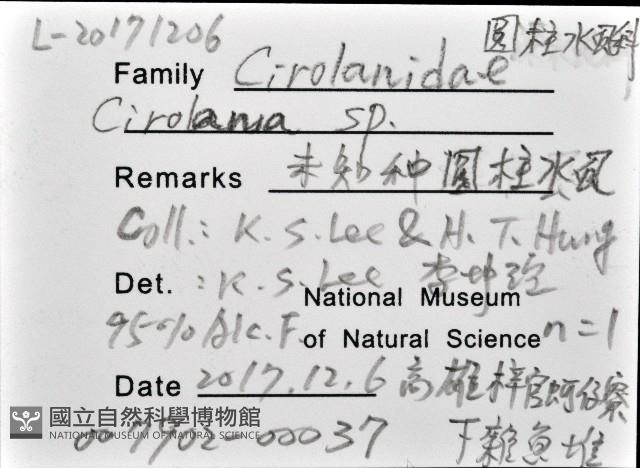 L-20171206 圓柱水虱科
Family Cirolanidae
Cirolana sp.
Remarks 未知种圓柱水虱
Coll.: K. S. Lee & H. T. Hung
Det. : K. S. Lee 李坤瑄
National Museum
95% Alc. F. of Natural Science n=1
Date 2017.12.6 高雄梓官蚵仔寮
國立自然科學博物館
NATIONAL MUSEUM OF NATURAL SCIENCE
00037 下雜魚堆